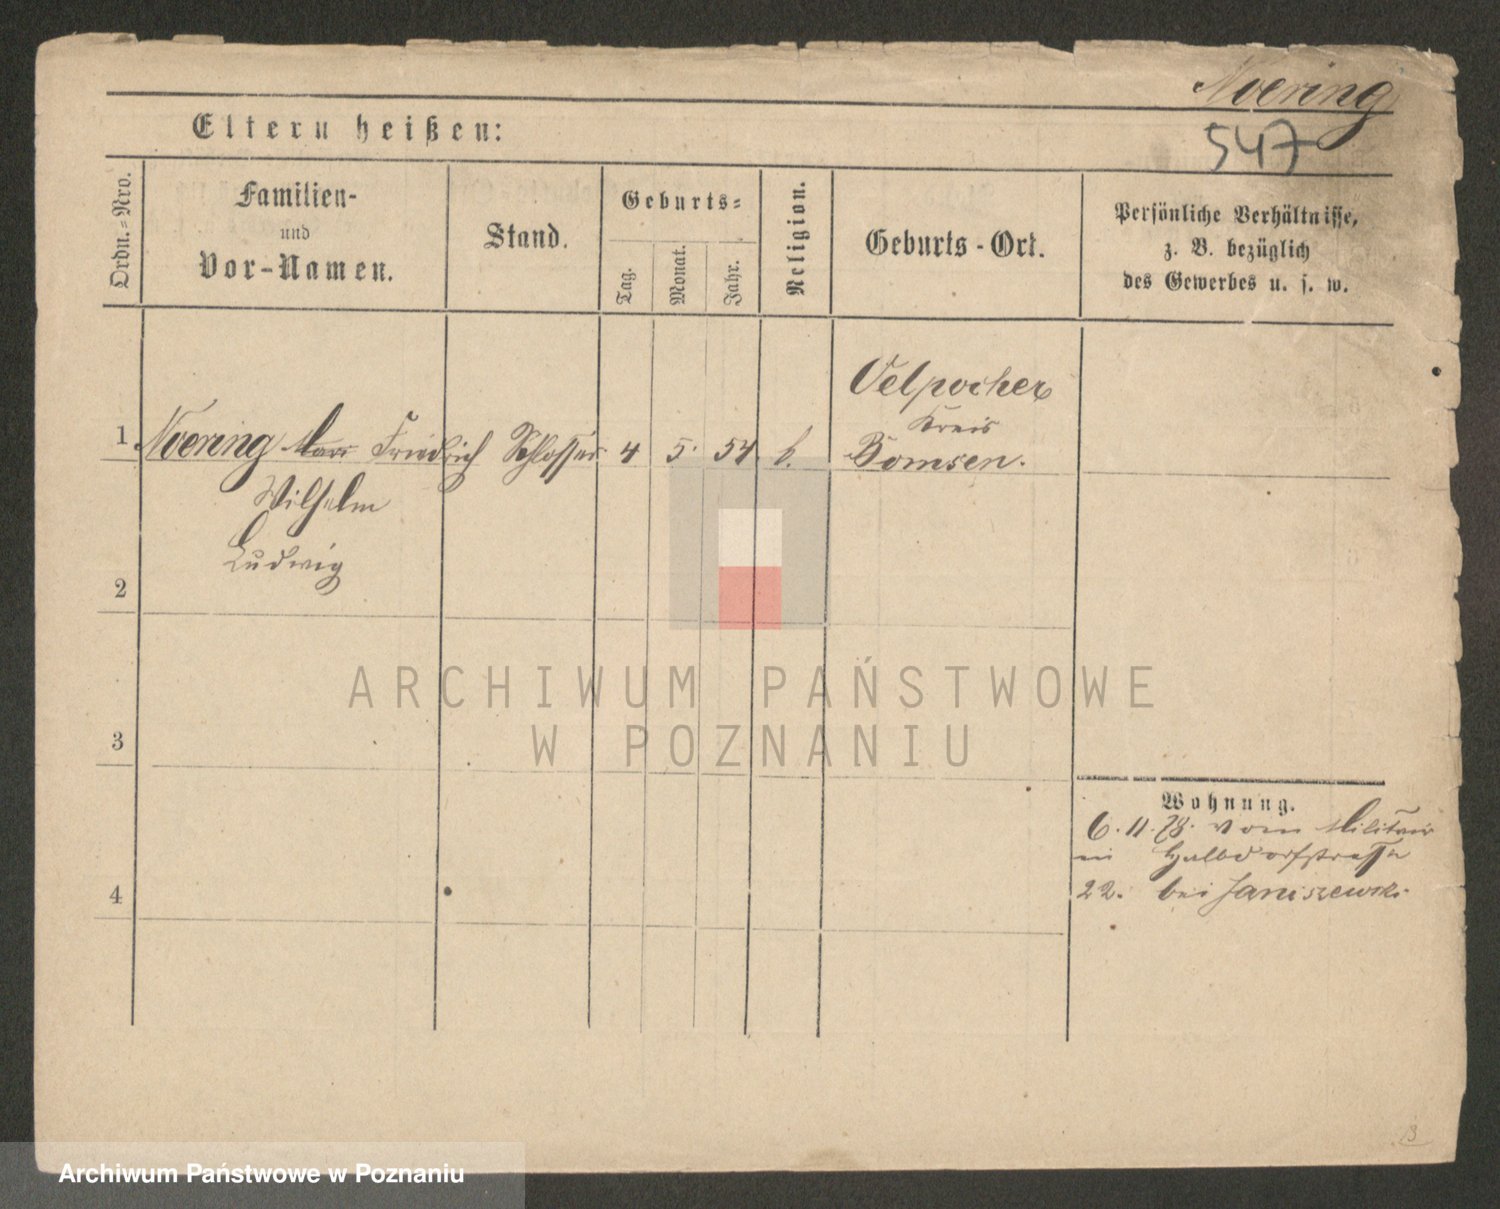 Noering
547
Eltern heißen:
Ordn.=Nro.
Familien-
und
Vor-Namen.
Stand.
Geburts=
Tag.
Monat.
Jahr.
Religion.
Geburts-Ort.
Persönliche Verhältnisse,
z. B. bezüglich
des Gewerbes u. s. w.
1 Noering Friedrich Schlosser 4 5. 54
Wilhelm
Ludwig
Oelpocher
Kreis
Bomsen.
2
3
4
Wohnung.
6. 11. 78. vom Militair
in Halbdorfstraße
22. bei Janiszewski
ARCHIWUM PAŃSTWOWE
W POZNANIU
Archiwum Państwowe w Poznaniu